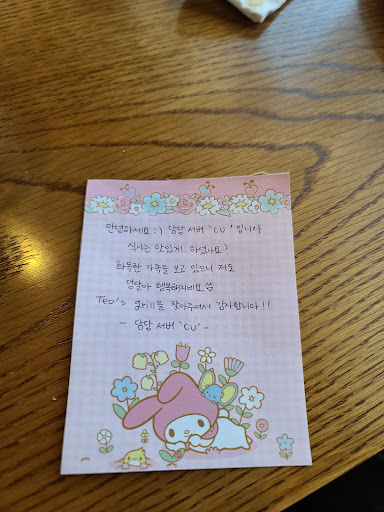 안녕하세요 :) 담당 서버 `CU'입니다
식사는 맛있게 하셨나요?
화목한 가족을 보고 있으니 저도
덩달아 행복해지네요
TEO's grill을 찾아주셔서 감사합니다!!
- 담당 서버 `CU' -